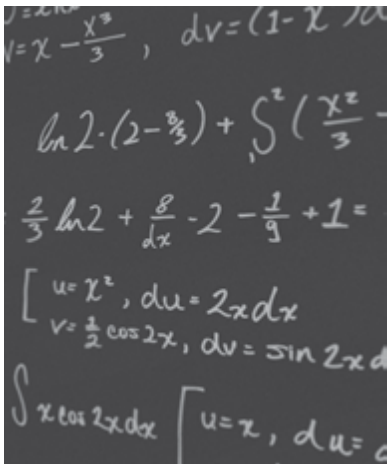 v = x - x³/3 , dv = (1 - x
ln 2 · (2 - 8/3) + ∫₁² (x²/3 -
2/3 ln 2 + 8/dx - 2 - 1/9 + 1 =
[ u = x² , du = 2x dx
v = 1/2 cos 2x , dv = sin 2x d
∫ x cos 2x dx [ u = x , du =